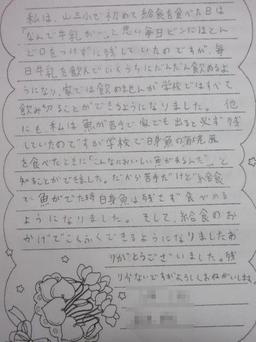 私は、山三小で初めて給食を食べた日は
「なんで牛乳が…。」と思い毎日ビンにほとん
ど口をつけずに残していたのですが、毎
日牛乳を飲んでいくうちにだんだん飲めるよ
うになり、家では飲めませんが学校ではすべて
飲み切ることができるようになりました。他
にも、私は魚が苦手で家でも出ると必ず残
していたのですが学校で白身魚の
を食べたときに「こんなにおいしい魚があるんだ。」と
知ることができました。だから苦手だけど給食
で魚がでた時白身魚は残さず食べれる
ようになりました。そして、給食のお
かげでこくふくできるようになりましたあ
りがとうございました。残
り少ないですがよろしくおねがいします。